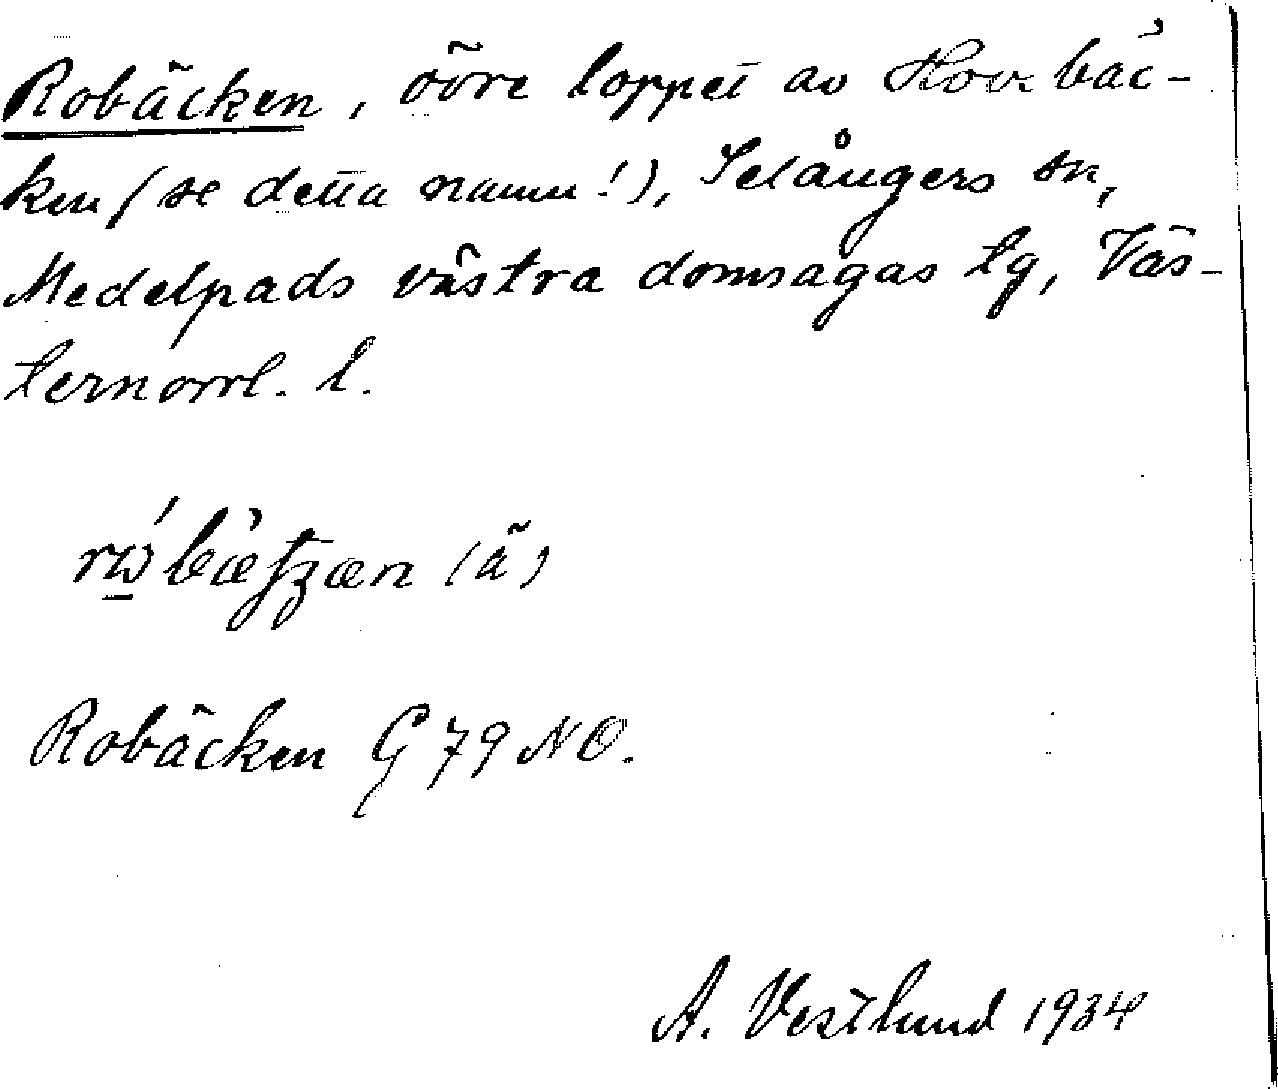 Robäcken, övre loppet av Hovebäc-
ken (se detta namn!), Selångers sn,
Medelpads västra domsagas tg, Väs-
ternorrl. l.
(ä)
Robäcken G 79 NO.
A. Vestlund 1934